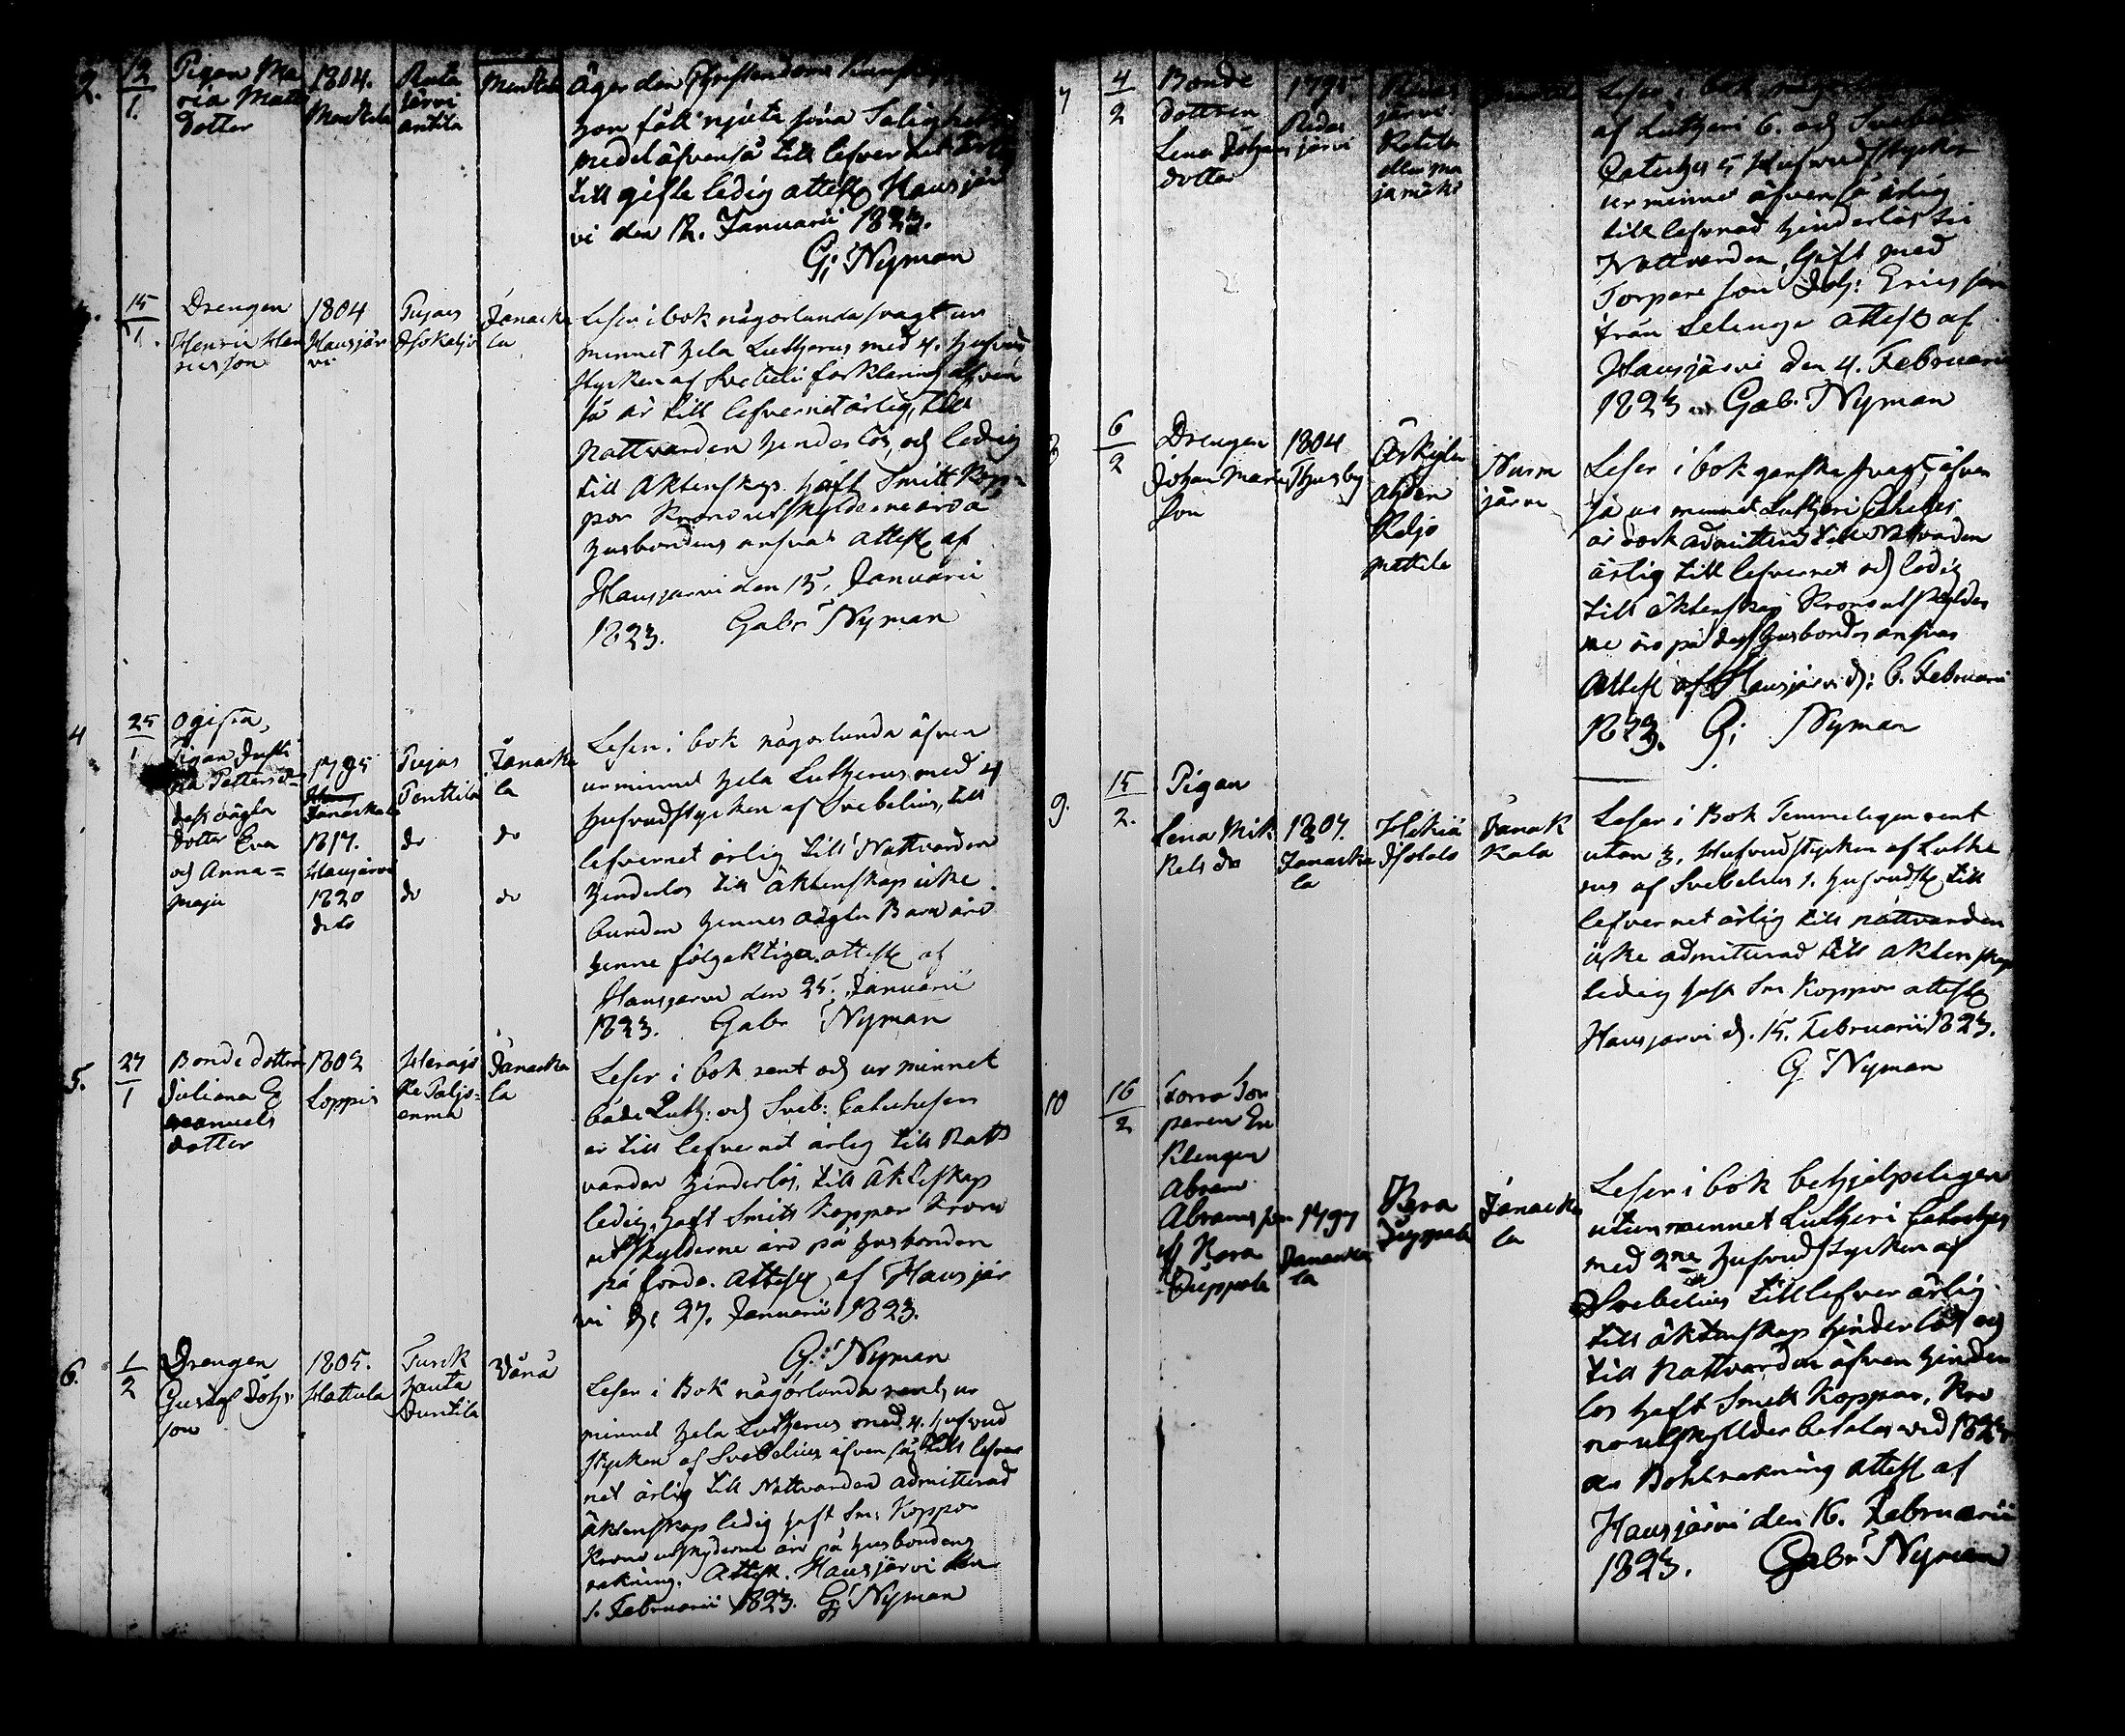 2.
12
1.
Pigan Ma
ria Matts
dotter
1804.
Ruta
järvi
antila
äger den Christendoms
hon fått njuta sina Salighets
medel äfvenså till lefvernet ärlig
till gifte ledig attest Hausjär
vi den 12. Januarii 1823.
G: Nyman
15
1.
Drengen
Henric Hen
ricsson
1804
Hausjär
vi
Janacka
la
Läser i bok någorlunda svagt ur
minnet hela Lutherus med 4. hufvud
stycken af Svebelii förklaring äfven
så är till lefvernet ärlig, till
Nattvarden hinderlös, och ledig
till Äktenskap haft Smitt Kop
por Krono utskylderne äro å
husbondens ansvar attest af
Hausjarvi den 15. Januarii
1823. Gabr Nyman
4
25
1
Ogifta
Pigan Justi
na Pettersd=
dess oägta
dotter Eva
och Anna=
Maja
1795
Janackala
1817.
Hausjärvi
1820
dito
Pujas
Penttila
do
do
Janacka
la
do
do
Läser i bok någorlunda äfven
ur minnet hela Lutherus med 4
hufvudstycken af Svebelius, till
lefvernet ärlig till Nattvarden
hinderlos till Äktenskap icke
bunden hennes oägta Barn äro
henne följaktiga attest af
Hausjarvi den 25. Januarii
1823. Gabr Nyman
5.
27
1
Bonde dottren
Juliana E
manuels
dotter
1802
Loppis
Janacka
la
Läser i bok rent och ur minnet
både Luth: och Sveb: Catechesen
är till lefvernet ärlig till Natt
varden hinderlös, till Äktenskap
ledig, haft Smitt Koppor Krono
utskylderne äro på husbonden
på förda. Attest af Hausjär
vi d: 27. Januarii 1823.
G: Nyman
6.
1
2
Drengen
Gustaf Joh:
son
1805.
Hattula
Turck
hauta
Vånå
Läser i Bok någorlunda rent, ur
minnet hela Lutherus med 4. hufvud
stycken af Svebelius äfven så till lefver
net ärlig till Nattvarden admitterad
äktenskap ledig haft Sm: Koppor
Krono utskylderne äro på husbondens
räkning. Attest. Hausjärvi den
1. Februarii 1823. G: Nyman
7
4
2
Bonde
dottren
Lena Johans
dotter
Ridas
järvi
Läser i bok någorlunda
af Lutheri 6. och Svebelii
Cateches 5 Hufvudstycken
ur minne äfven så ärlig
till lefvnad hinderlös till
Nattvarden, Gift med
Torpare son Joh: Ericsson
från attest af
Hausjärvi den 4. Februarii
1823 Gab. Nyman
8
6
2
Drengen
Johan Mats
son
1804
Thusby
Keljo
Mattila
Nurm
järvi
Läser i bok ganska svagt, äfven
så ur minnet Lutheri Cateches
är dock admitterad till Nattvarden
ärlig till lefvernet och ledig
till äktenskap Krono utskylder
ne äro på dess husbondes ansvar
Attest af Hausjärvi d: 6. Februarii
1823. G: Nyman
9.
15
2.
Pigan
Lena Mik
kels dr
1807.
Janacka
la
Hikiä
Janak
kala
Läser i Bok Temmeligen rent
utan 3. Hufvudstycken af Luthe
rus af Svebelius 1. hufvudst. till
lefvernet ärlig till nattvarden
icke admitterad till äktenskap
ledig haft Sm Koppor attest
Hausjarvi d. 15. Februarii 1823.
G Nyman
10
16
2
Torpare En
Klingen
Abram
Abramsson
1797
Janacka
la
Kara
Janacka
la
Läser i bok behjelpeligen
utur minnet Lutheri Cateches
med 2ne hufvudstycken af
Svebelius till lefver ärlig
till äktenskap hinderlös och
till Nattvarden äfven hinder
lös haft Smitt Koppor, Kro
no utskylder betalas vid 1824
as Bohlräkning attest af
Hausjärvi den 16. Februarii
1823. Gabr Nyman